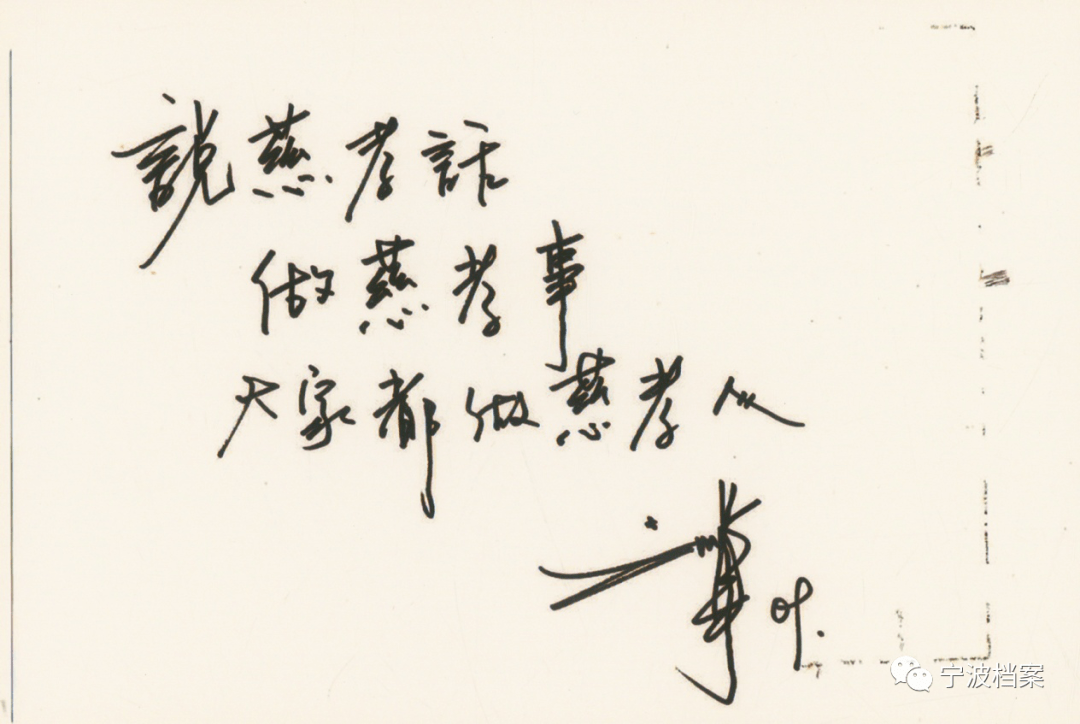 說慈孝話
做慈孝事
大家都做慈孝人
09.
宁波档案